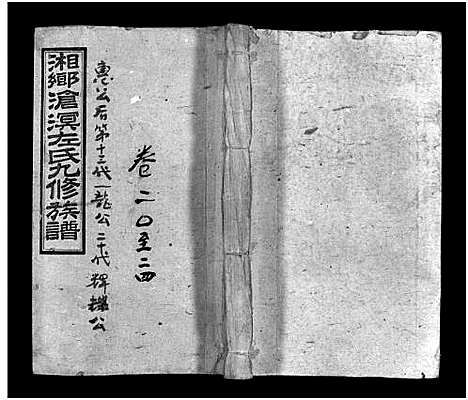 湘鄉滄溟左氏九修族譜
惠公后第十三代一龍公二十代輝公
卷二〇至二四